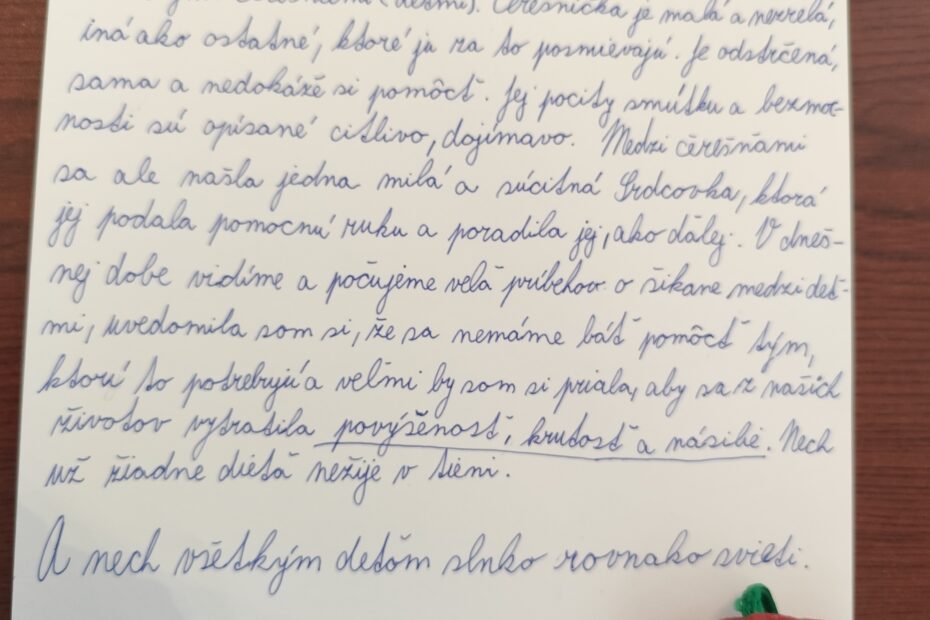 čerešňami (deťmi). Čerešnička je malá a nezrelá,
iná ako ostatné, ktoré ju za to posmievajú. Je odstrčená,
sama a nedokáže si pomôcť. Jej pocity smútku a bezmoc-
nosti sú opísané citlivo, dojímavo. Medzi čerešňami
sa ale našla jedna milá a súcitná Srdcovka, ktorá
jej podala pomocnú ruku a poradila jej, ako ďalej. V dneš-
nej dobe vidíme a počujeme veľa príbehov o šikane medzi deť-
mi, uvedomila som si, že sa nemáme báť pomôcť tým,
ktorí to potrebujú a veľmi by som si priala, aby sa z našich
životov vytratila povýšenosť, krutosť a násilie. Nech
už žiadne dieťa nežije v tieni.
A nech všetkým deťom slnko rovnako svieti.